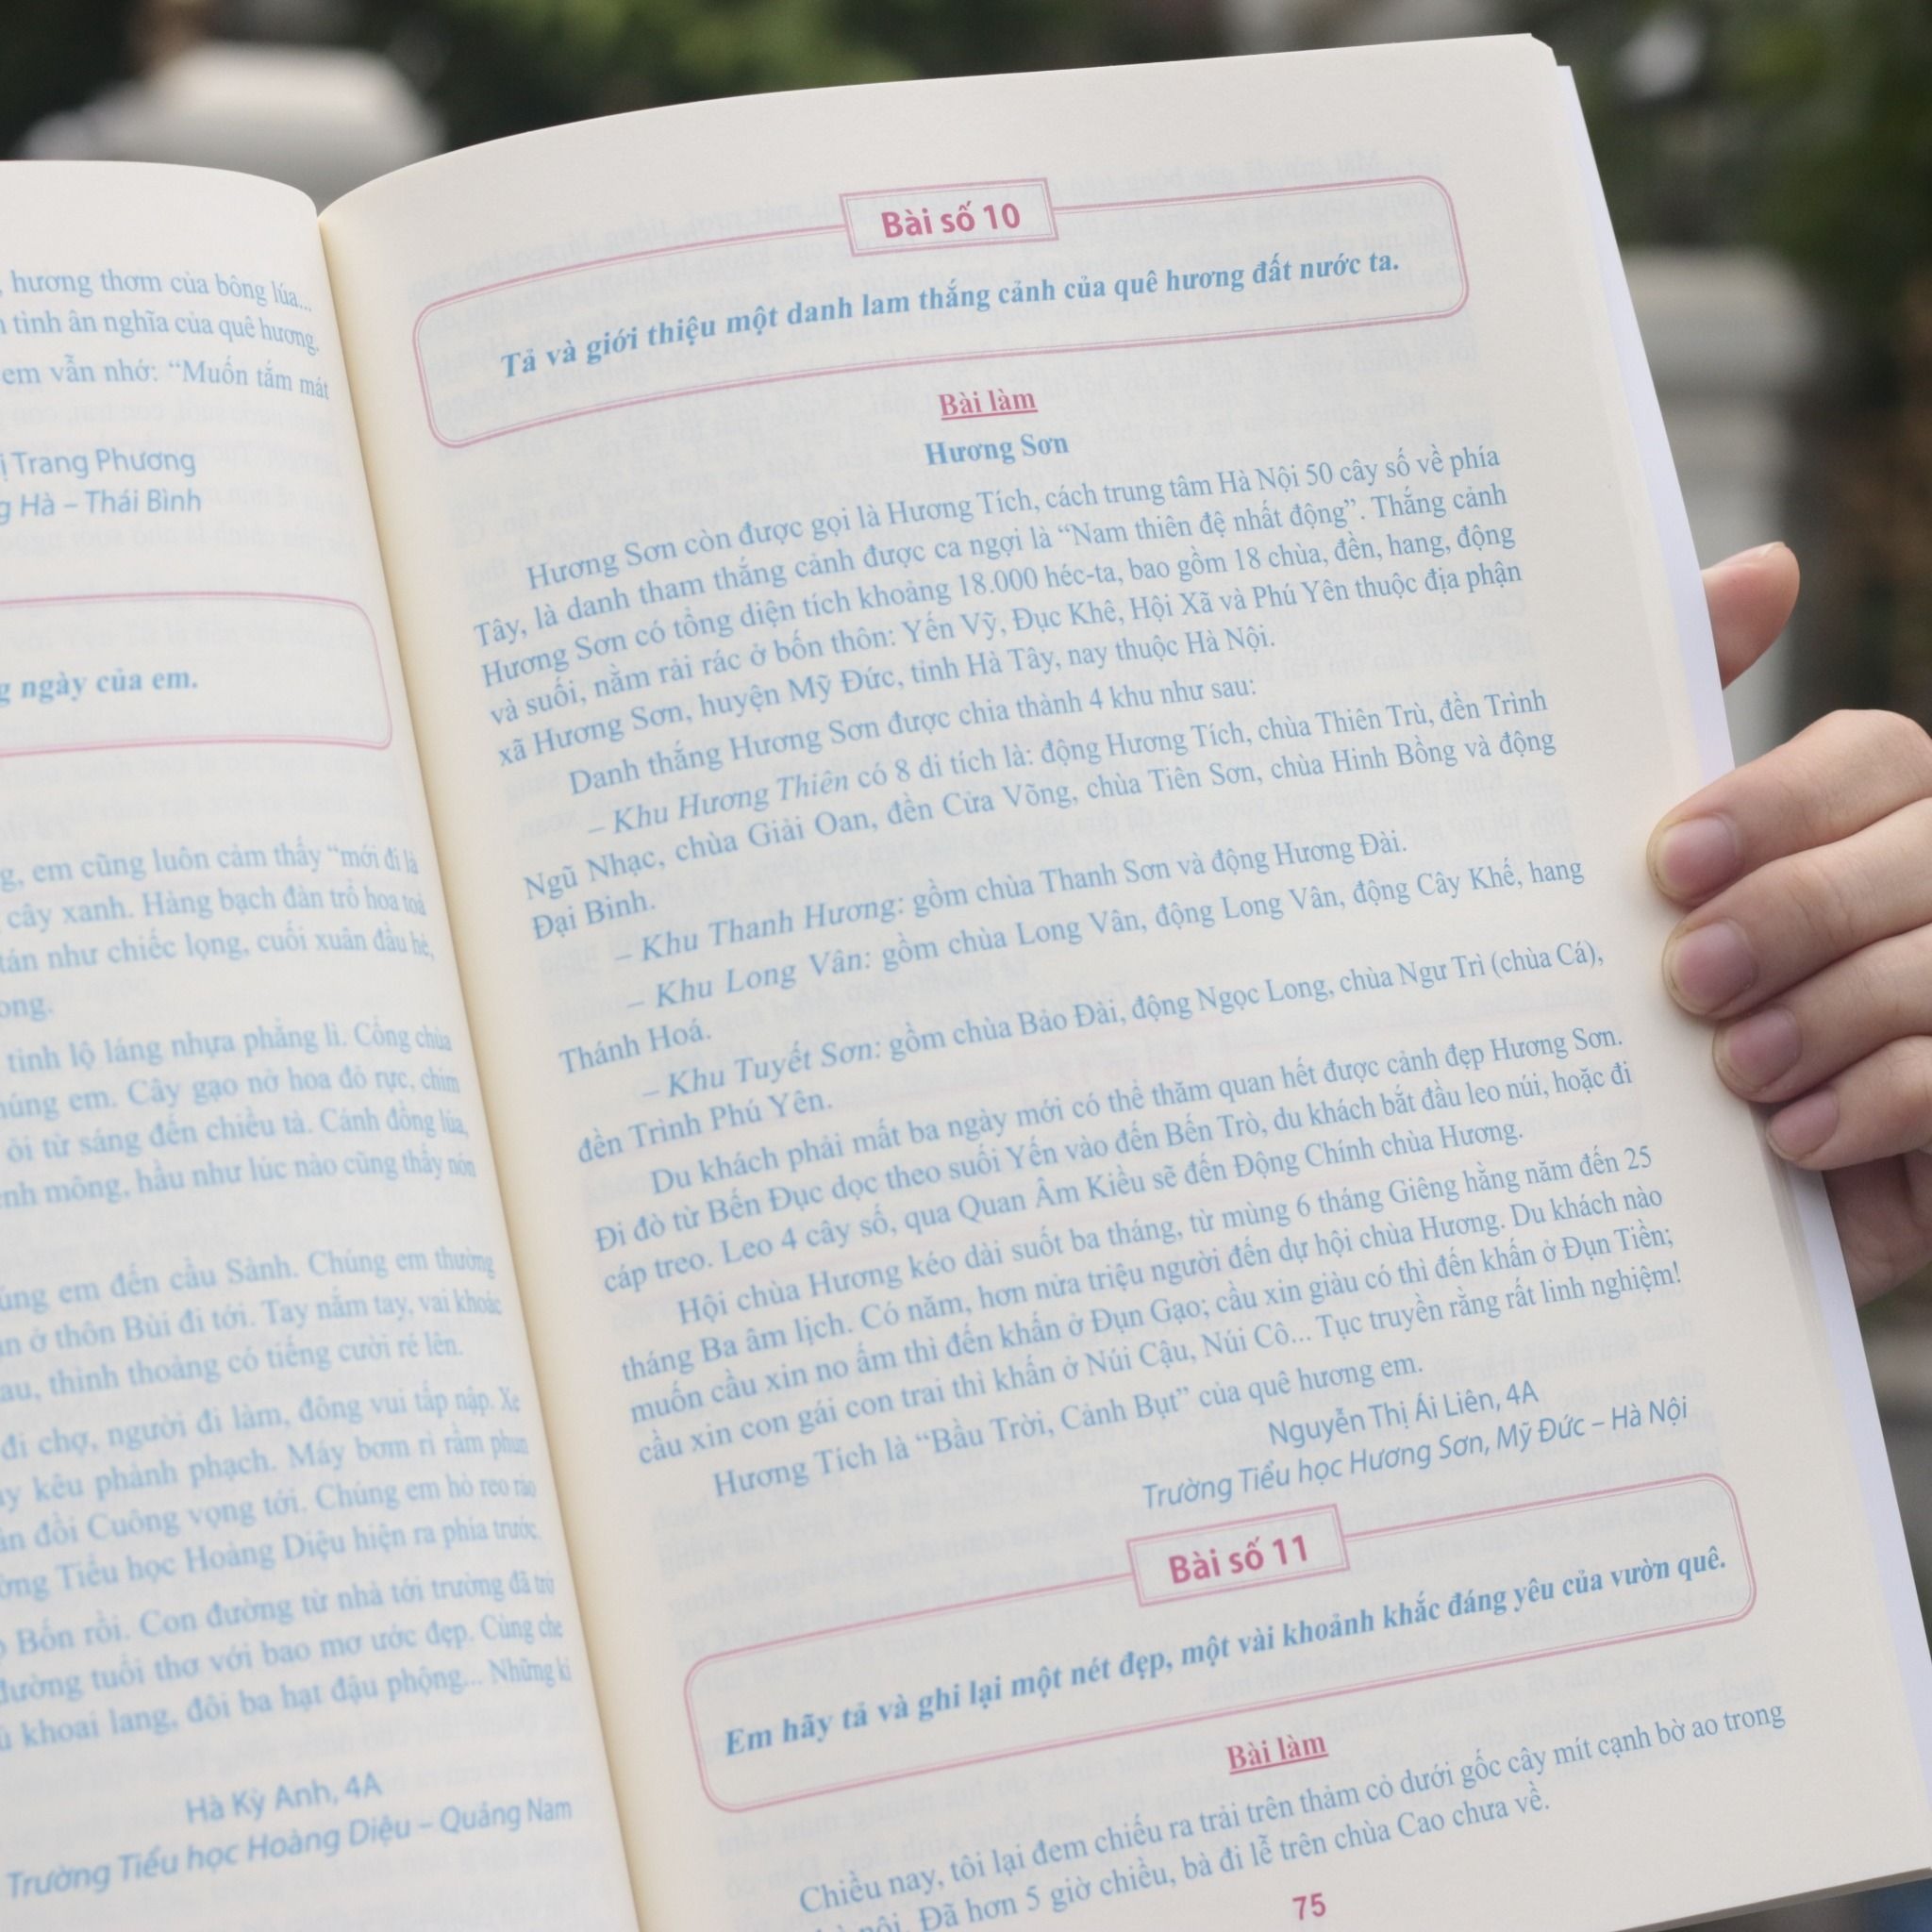 hương thơm của bông lúa...
tình ân nghĩa của quê hương.
em vẫn nhớ: “Muốn tắm mát
Trang Phương
Hà – Thái Bình
ngày của em.
em cũng luôn cảm thấy “mới đi là
cây xanh. Hàng bạch đàn trổ hoa toả
tán như chiếc lọng, cuối xuân đầu hè,
ong.
tỉnh lộ láng nhựa phẳng lì. Cổng chùa
húng em. Cây gạo nở hoa đỏ rực, chim
ỏi từ sáng đến chiều tà. Cánh đồng lúa,
ênh mông, hầu như lúc nào cũng thấy nón
úng em đến cầu Sảnh. Chúng em thường
ở thôn Bùi đi tới. Tay nắm tay, vai khoác
au, thỉnh thoảng có tiếng cười ré lên.
đi chợ, người đi làm, đông vui tấp nập. Xe
kêu phành phạch. Máy bơm rì rầm phun
đồi Cuông vọng tới. Chúng em hò reo ráo
ờng Tiểu học Hoàng Diệu hiện ra phía trước.
Bốn rồi. Con đường từ nhà tới trường đã trở
đường tuổi thơ với bao mơ ước đẹp. Cùng che
khoai lang, đôi ba hạt đậu phộng... Những kỉ
Hà Kỳ Anh, 4A
Trường Tiểu học Hoàng Diệu – Quảng Nam
Bài số 10
Tả và giới thiệu một danh lam thắng cảnh của quê hương đất nước ta.
Bài làm
Hương Sơn
Hương Sơn còn được gọi là Hương Tích, cách trung tâm Hà Nội 50 cây số về phía
Tây, là danh tham thắng cảnh được ca ngợi là “Nam thiên đệ nhất động”. Thắng cảnh
Hương Sơn có tổng diện tích khoảng 18.000 héc-ta, bao gồm 18 chùa, đền, hang, động
và suối, nằm rải rác ở bốn thôn: Yến Vỹ, Đục Khê, Hội Xã và Phú Yên thuộc địa phận
xã Hương Sơn, huyện Mỹ Đức, tỉnh Hà Tây, nay thuộc Hà Nội.
Danh thắng Hương Sơn được chia thành 4 khu như sau:
– Khu Hương Thiên có 8 di tích là: động Hương Tích, chùa Thiên Trù, đền Trình
Ngũ Nhạc, chùa Giải Oan, đền Cửa Võng, chùa Tiên Sơn, chùa Hinh Bồng và động
Đại Binh.
– Khu Thanh Hương: gồm chùa Thanh Sơn và động Hương Đài.
– Khu Long Vân: gồm chùa Long Vân, động Long Vân, động Cây Khế, hang
Thánh Hoá.
– Khu Tuyết Sơn: gồm chùa Bảo Đài, động Ngọc Long, chùa Ngư Trì (chùa Cá),
đền Trình Phú Yên.
Du khách phải mất ba ngày mới có thể thăm quan hết được cảnh đẹp Hương Sơn.
Đi đò từ Bến Đục dọc theo suối Yến vào đến Bến Trò, du khách bắt đầu leo núi, hoặc đi
cáp treo. Leo 4 cây số, qua Quan Âm Kiều sẽ đến Động Chính chùa Hương.
Hội chùa Hương kéo dài suốt ba tháng, từ mùng 6 tháng Giêng hằng năm đến 25
tháng Ba âm lịch. Có năm, hơn nửa triệu người đến dự hội chùa Hương. Du khách nào
muốn cầu xin no ấm thì đến khấn ở Đụn Gạo; cầu xin giàu có thì đến khấn ở Đụn Tiền;
cầu xin con gái con trai thì khấn ở Núi Cậu, Núi Cô... Tục truyền rằng rất linh nghiệm!
Hương Tích là “Bầu Trời, Cảnh Bụt” của quê hương em.
Nguyễn Thị Ái Liên, 4A
Trường Tiểu học Hương Sơn, Mỹ Đức – Hà Nội
Bài số 11
Em hãy tả và ghi lại một nét đẹp, một vài khoảnh khắc đáng yêu của vườn quê.
Bài làm
Chiều nay, tôi lại đem chiếu ra trải trên thảm cỏ dưới gốc cây mít cạnh bờ ao trong
nội. Đã hơn 5 giờ chiều, bà đi lễ trên chùa Cao chưa về.
75